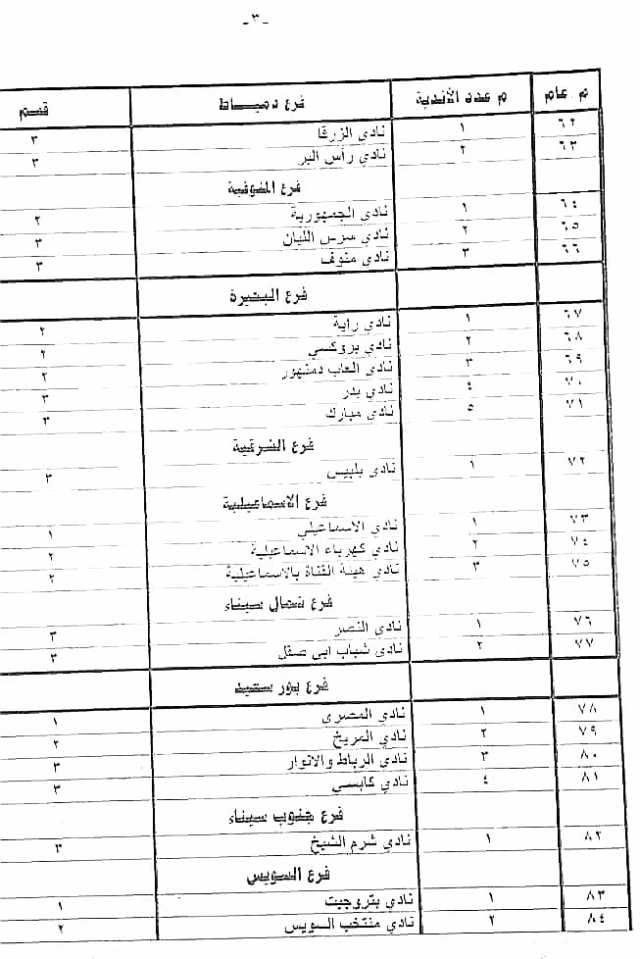 -٣-
م عام م عدد الأندية فرع دمياط قسم
٦٢ ١ نادي الزرقا ٣
٦٣ ٢ نادي رأس البر ٣
فرع المنوفية
٦٤ ١ نادي الجمهورية ٢
٦٥ ٢ نادي سرس الليان ٣
٦٦ ٣ نادي منوف ٣
فرع البحيرة
٦٧ ١ نادي راية ٢
٦٨ ٢ نادي بروكسي ٢
٦٩ ٣ نادي العاب دمنهور ٢
٧٠ ٤ نادي بدر ٣
٧١ ٥ نادي مبارك ٣
فرع الشرقية
٧٢ ١ نادي بلبيس ٣
فرع الاسماعيلية
٧٣ ١ نادي الاسماعيلي ١
٧٤ ٢ نادي كهرباء الاسماعيلية ٢
٧٥ ٣ نادي هيئة القناة بالاسماعيلية ٢
فرع شمال سيناء
٧٦ ١ نادي النصر ٣
٧٧ ٢ نادي شباب ابى صقل ٣
فرع بور سعيد
٧٨ ١ نادي المصرى ١
٧٩ ٢ نادي المريخ ٢
٨٠ ٣ نادي الرباط والانوار ٣
٨١ ٤ نادي كابسي ٣
فرع جنوب سيناء
٨٢ ١ نادي شرم الشيخ ٣
فرع السويس
٨٣ ١ نادي بتروجيت ١
٨٤ ٢ نادي منتخب السويس ٢